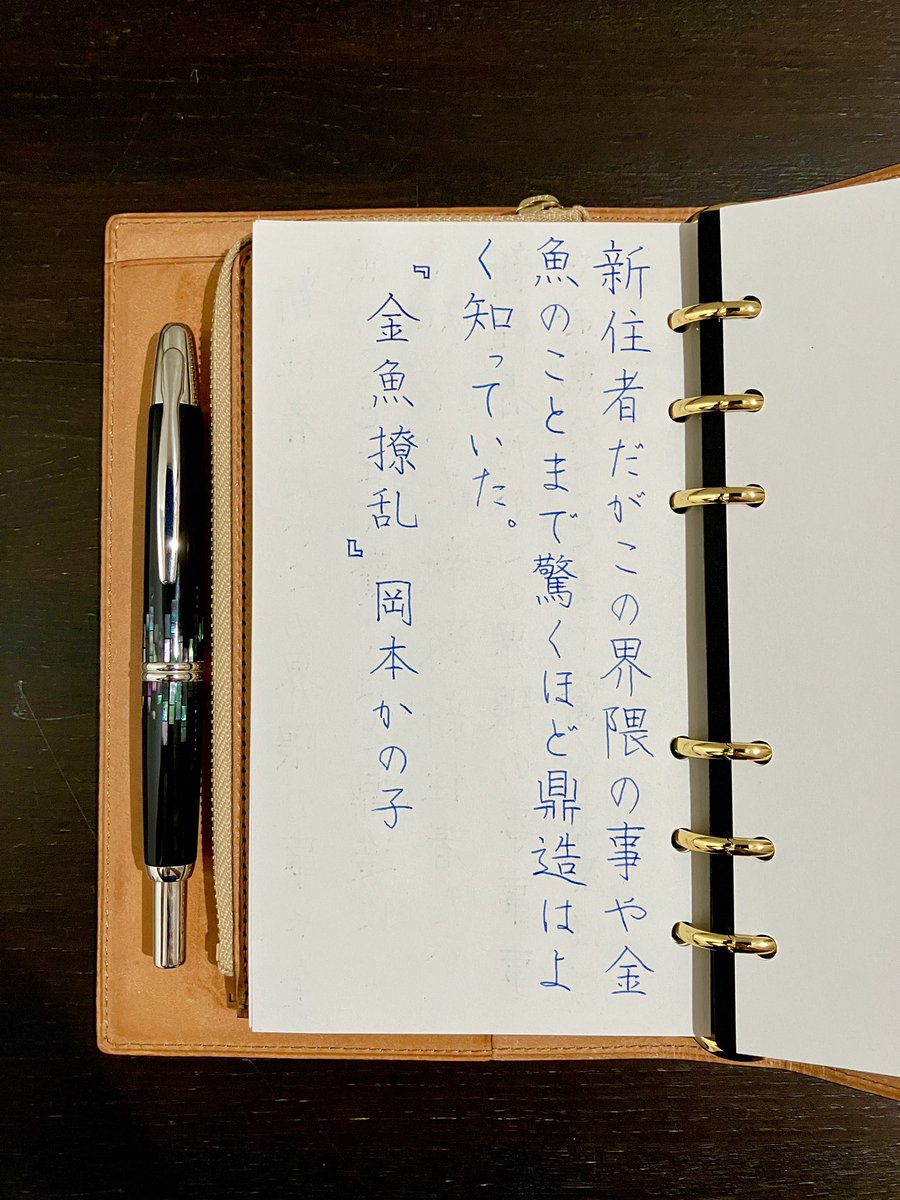 新住者だがこの界隈の事や金
魚のことまで驚くほど鼎造はよ
く知っていた。
『金魚撩乱』岡本かの子